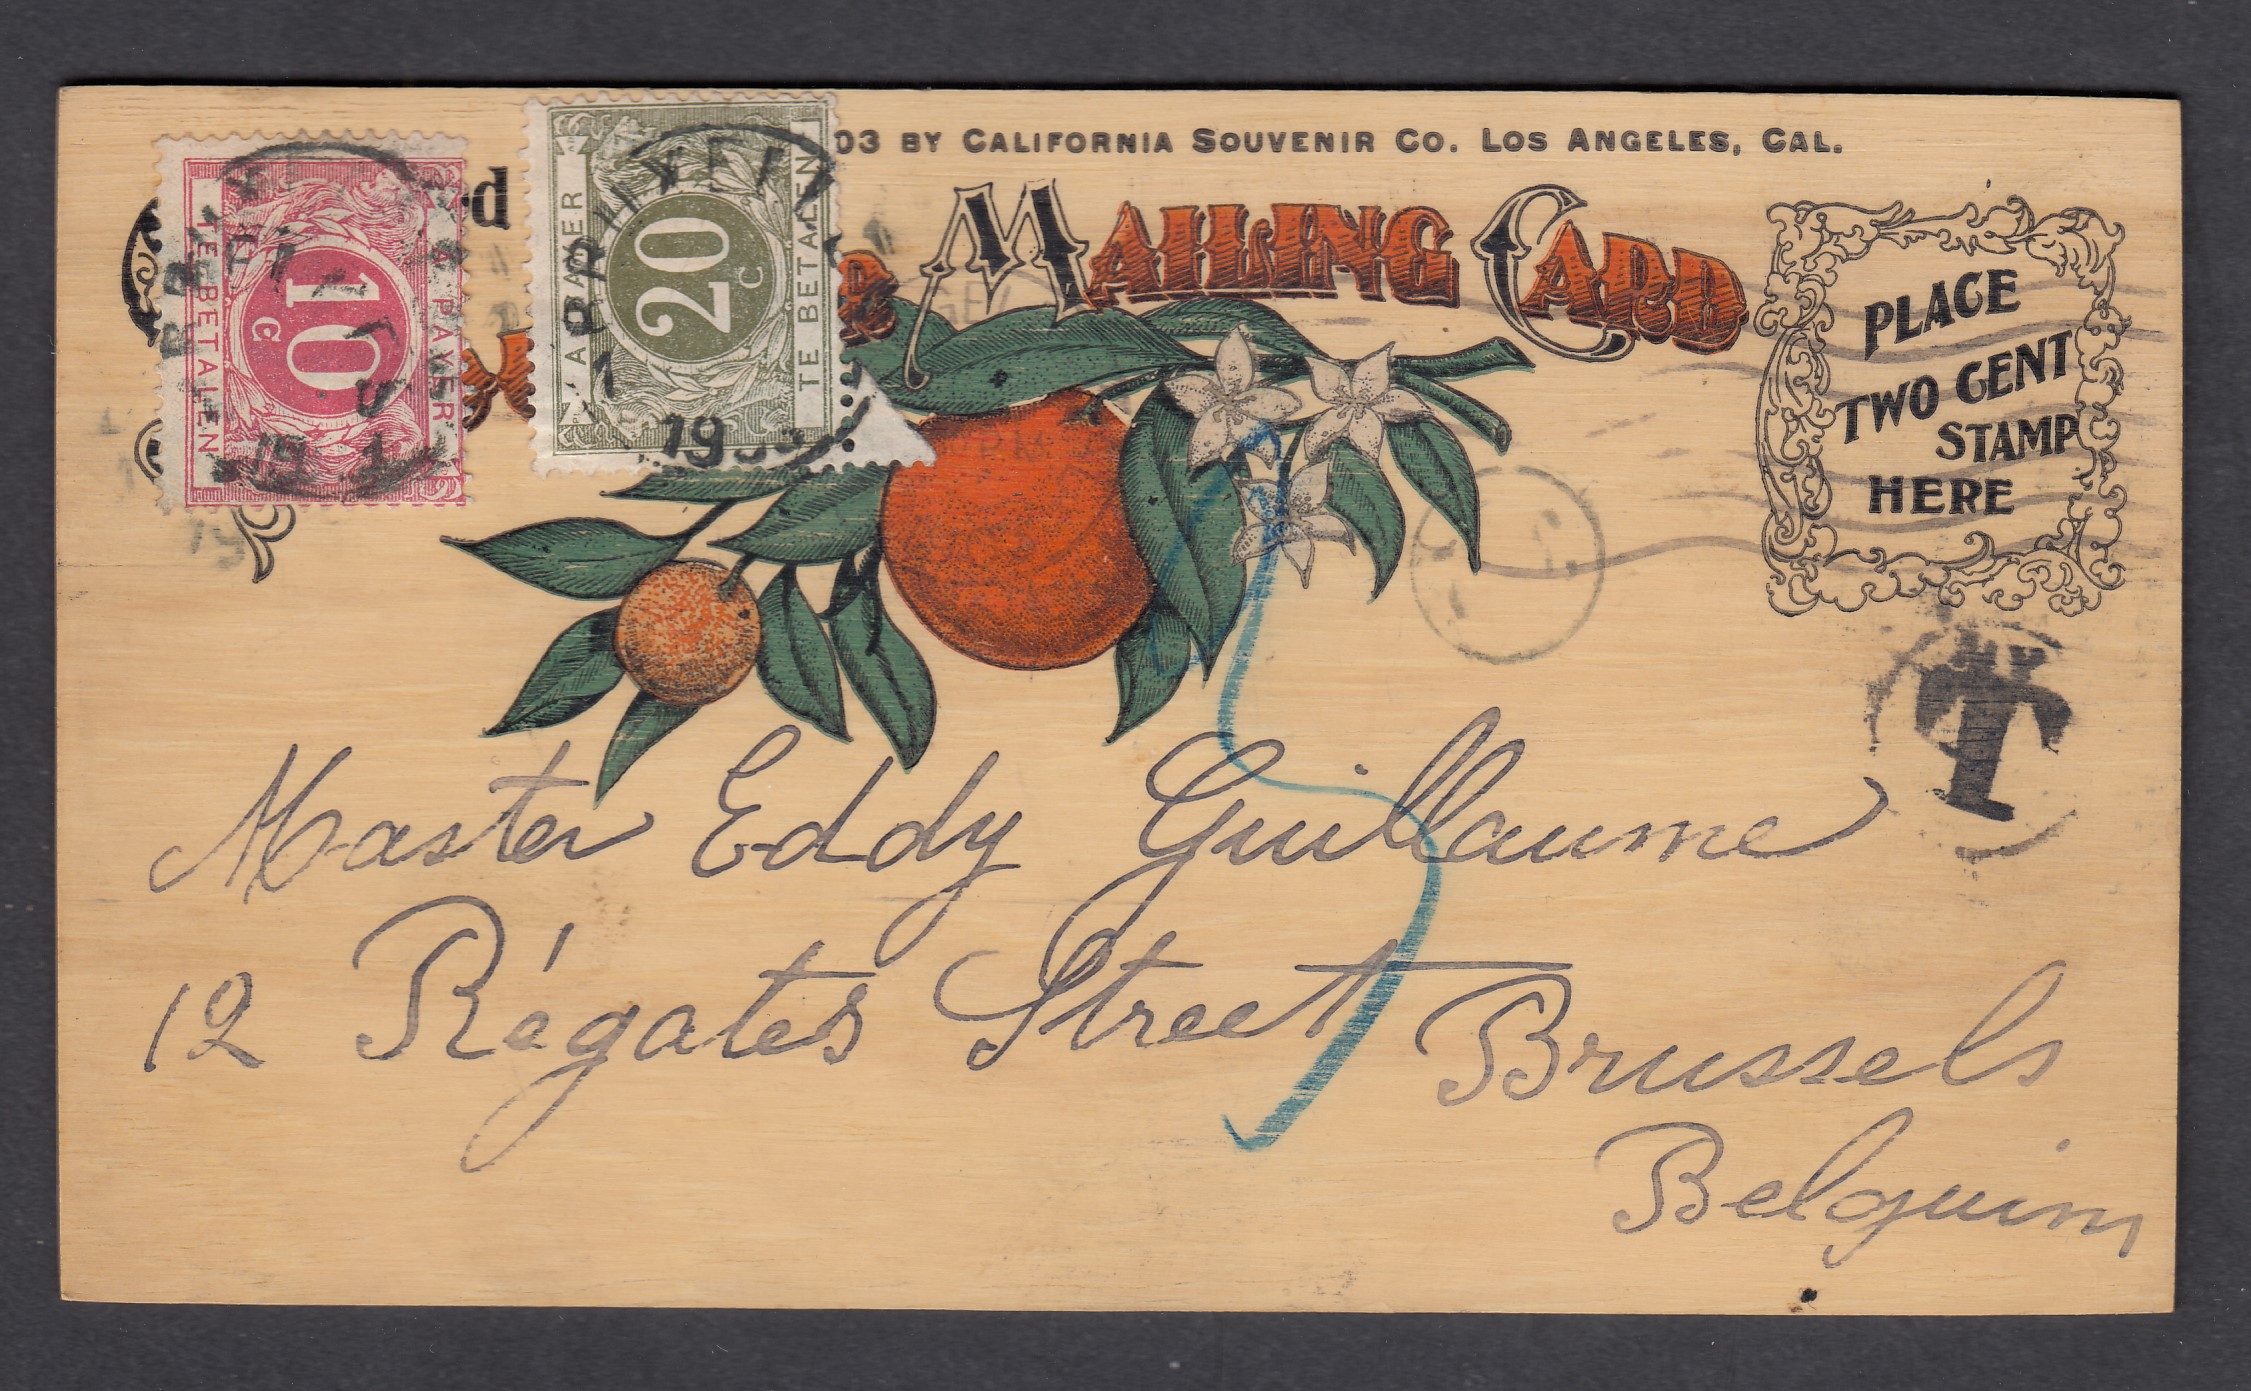 03 BY CALIFORNIA SOUVENIR CO. LOS ANGELES, CAL.
MAILING CARD
PLACE
TWO CENT
STAMP
HERE
A PAYER
10 c
TE BETALEN
A PAYER
20 c
TE BETALEN
T
Master Eddy Guillaume
12 Régates Street Brussels
Belguim